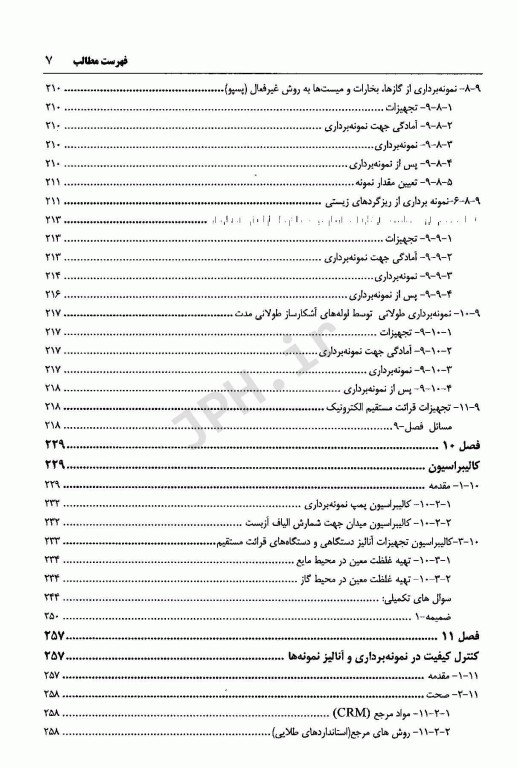 فهرست مطالب ۷
۹-۸- نمونه‌برداری از گازها، بخارات و میست‌ها به روش غیرفعال (پسیو) ۲۱۰
۹-۸-۱- تجهیزات ۲۱۰
۹-۸-۲- آمادگی جهت نمونه‌برداری ۲۱۰
۹-۸-۳- نمونه‌برداری ۲۱۰
۹-۸-۴- پس از نمونه‌برداری ۲۱۰
۹-۸-۵- تعیین مقدار نمونه ۲۱۱
۹-۸-۶-نمونه برداری از ریزگردهای زیستی ۲۱۱
۲۱۳
۹-۹-۱- تجهیزات ۲۱۳
۹-۹-۲- آمادگی جهت نمونه‌برداری ۲۱۳
۹-۹-۳- نمونه‌برداری ۲۱۴
۹-۹-۴- پس از نمونه‌برداری ۲۱۶
۹-۱۰- نمونه‌برداری طولانی توسط لوله‌های آشکارساز طولانی مدت ۲۱۷
۹-۱۰-۱- تجهیزات ۲۱۷
۹-۱۰-۲- آمادگی جهت نمونه‌برداری ۲۱۷
۹-۱۰-۳- نمونه‌برداری ۲۱۷
۹-۱۰-۴- پس از نمونه‌برداری ۲۱۸
۹-۱۱- تجهیزات قرائت مستقیم الکترونیک ۲۱۸
مسائل فصل-۹ ۲۱۸
فصل ۱۰ ۲۲۹
کالیبراسیون ۲۲۹
۱۰-۱- مقدمه ۲۲۹
۱۰-۲-۱- کالیبراسیون پمپ نمونه‌برداری ۲۳۲
۱۰-۲-۲- کالیبراسیون میدان جهت شمارش الیاف آزبست ۲۳۲
۱۰-۳-کالیبراسیون تجهیزات آنالیز دستگاهی و دستگاه‌های قرائت مستقیم ۲۳۳
۱۰-۳-۱- تهیه غلظت معین در محیط مایع ۲۳۴
۱۰-۳-۲- تهیه غلظت معین در محیط گاز ۲۳۴
سوال های تکمیلی: ۲۴۴
ضمیمه-۱ ۲۵۰
فصل ۱۱ ۲۵۷
کنترل کیفیت در نمونه‌برداری و آنالیز نمونه‌ها ۲۵۷
۱۱-۱- مقدمه ۲۵۷
۱۱-۲- صحت ۲۵۸
۱۱-۲-۱- مواد مرجع (CRM) ۲۵۸
۱۱-۲-۲- روش های مرجع(استانداردهای طلایی) ۲۵۸
JPH.ir